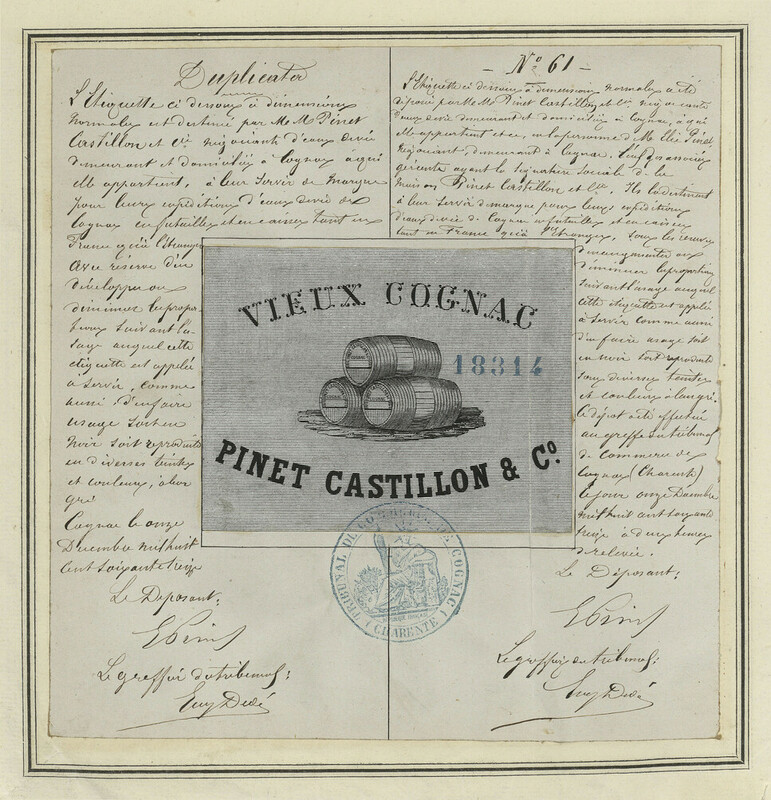 Duplicata
L'Etiquette ci dessous à dimensions
normales est destinée par M.M. Pinet
Castillon et Cie négociants d'eaux devie
demeurant et domiciliés à Cognac à qui
elle appartient, à leur servir de marque
pour leurs expéditions d'eaux devie de
Cognac en futailles et en caisses tant en
France qu'à l'étranger
avec réserve d'en
développer ou
diminuer les propor-
tions suivant l'u-
sage auquel cette
étiquette est appelée
à servir, comme
aussi d'en faire
usage soit en
noir soit reproduite
en diverses teintes
et couleurs, à leur
gré
Cognac le onze
Décembre mil huit
cent soixante treize
Le Déposant:
Le greffier du tribunal:
- No. 61 -
L'Etiquette ci dessous à dimensions normales a été
déposée par M.M. Pinet Castillon et Cie négociants
d'eaux devie demeurant et domiciliés à Cognac, à qui
elle appartient et en la personne de M. Elie Pinet,
négociant demeurant à Cognac, l'un des associés
gérants ayant la signature sociale de la
maison Pinet Castillon et Cie. Ils la destinent
à leur servir de marque pour leurs expéditions
d'eaux devie de Cognac en futailles et en caisses
tant en France qu'à l'étranger, sous les réserves
d'en augmenter ou
diminuer les proportions
suivant l'usage auquel
cette étiquette est appelée
à servir comme aussi
d'en faire usage soit
en noir soit reproduite
sous diverses teintes
et couleurs à leur gré.
Le dépôt a été effectué
au greffe du tribunal
de Commerce de
Cognac (Charente)
le jour onze Décembre
mil huit cent soixante
treize à deux heures
de relevée.
Le Déposant:
Le greffier du tribunal:
VIEUX COGNAC
18314
PINET CASTILLON & Co.
TRIBUNAL DE COMMERCE DE COGNAC
(CHARENTE)